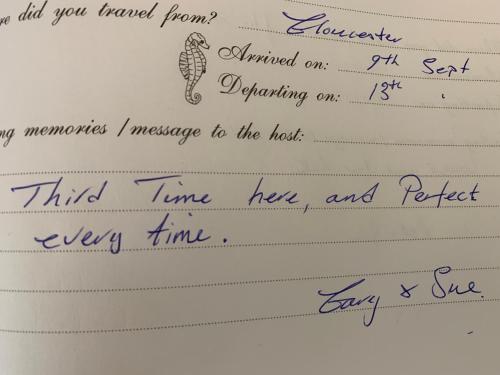 re did you travel from? Gloucester
Arrived on: 9th Sept
Departing on: 13th
ng memories / message to the host:
Third Time here, and Perfect
every time.
Gary & Sue.